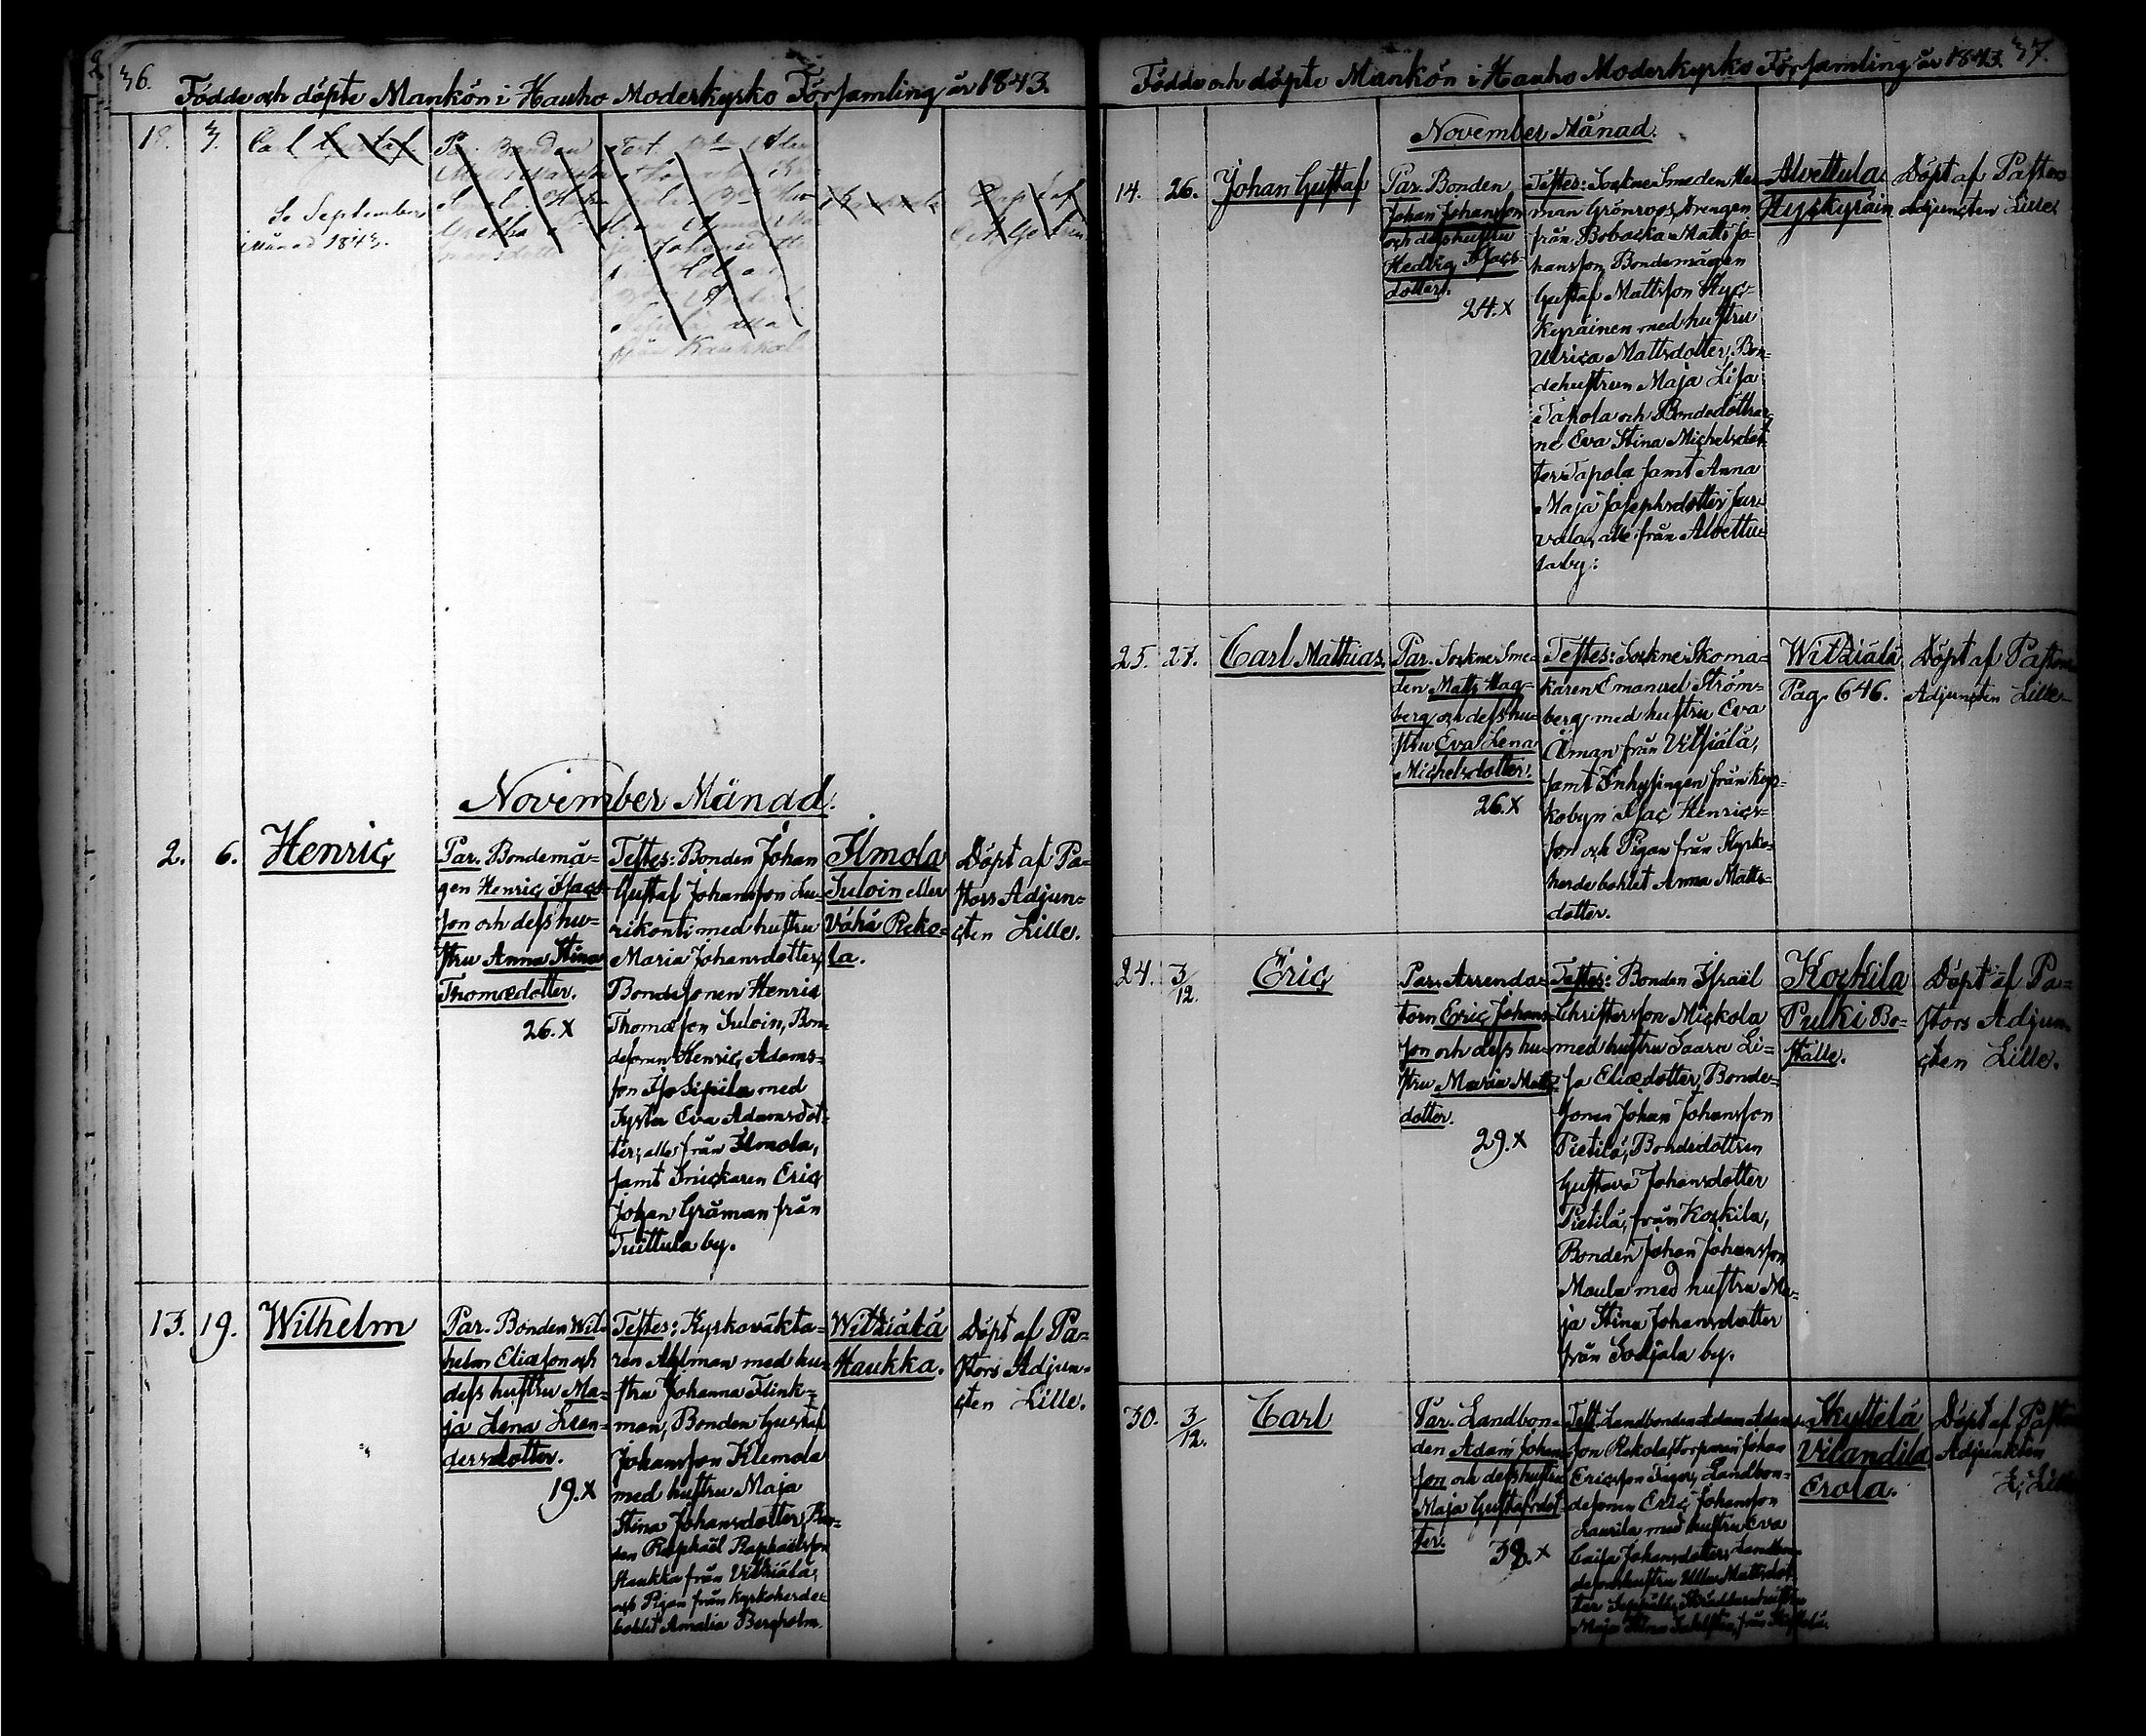 36.
Födde och döpte Mankön i Hauho Moderkyrko Församling år 1843.
18. 7. Carl Gustaf
Se September
Månad 1843.
Par. Bonden
November Månad.
2. 6. Henric
Par. Bondemå-
gen Henric Isacs-
son och dess hu-
stru Anna Stina
Thomædotter.
26. x
Testes: Bonden Johan
Gustaf Johansson Lu-
rikonti med hustru
Maria Johansdotter,
Bondesonen Henric
Thomæson Suloin, Bon-
desonen Henric Adams-
son Iso Sipila med
Syster Eva Adamsdot-
ter, alle från Ilmola,
samt Snickaren Eric
Johan Gråman från
Tuittula by.
Ilmola
Suloin eller
Vähä Reko-
la.
Döpt af Pa-
stors Adjun-
cten Lille.
13. 19. Wilhelm
Par. Bonden Wil-
helm Eliæson och
dess hustru Ma-
ja Lena Lean-
dersdotter.
19. x
Testes: Kyrkovakta-
ren Ahlman med hu-
stru Johanna Flink-
man, Bonden Gustaf
Johansson Klemola
med hustru Maja
Stina Johansdotter, Bon-
den Raphaël Raphaëlsson
Haukka från Vitsiälä,
och Pigan från Kyrkoherde-
bohlet Amalia Bergholm.
Witsiälä
Haukka.
Döpt af Pa-
stors Adjun-
cten Lille.
37.
Födde och döpte Mankön i Hauho Moderkyrko Församling år 1843.
November Månad.
14. 26. Johan Gustaf
Par. Bonden
Johan Johansson
och dess hustru
Hedvig Isacs-
dotter.
24. x
Testes: Sockne Smeden Her-
man Grönroos, Drengen
från Bobacka Matts Jo-
hansson, Bondemågen
Gustaf Mattsson Hyr-
kyräinen med hustru
Ulrica Mattsdotter, Bon-
dehustrun Maja Lisa
Tapola och Bondedöttrar-
ne Eva Stina Michelsdot-
ter Tapola samt Anna
Maja Josephsdotter Jur-
vala, alle från Alvettu-
la by.
Alvettula
Döpt af Pastors
Adjuncten Lille.
25. 27. Carl Mathias.
Par. Sockne Sme-
den Matts Hag-
berg och dess hu-
stru Eva Lena
Michelsdotter.
26. x
Testes: Sockne Skoma-
karen Emanuel Ström-
berg med hustru Eva
Öman från Vitsiälä,
samt Inhysingen från Kyr-
kobyn Isac Henrics-
son och Pigan från Kyrko-
herdebohlet Anna Matts-
dotter.
Witsiälä
Pag. 646.
Döpt af Pastors
Adjuncten Lille.
24. 3/12. Eric
Par. Arrenda-
torn Eric Johans-
son och dess hu-
stru Maria Matts-
dotter.
29. x
Testes: Bonden Israël
Christersson Mickola
med hustru Saara Li-
sa Eliædotter, Bonde-
sonen Johan Johansson
Pietilä, Bondedottren
Gustava Johansdotter
Pietilä, från Koskila,
Bonden Johan Johansson
Maula med hustru Ma-
ja Stina Johansdotter
från Sodjala by.
Koskila
Pulki Bo-
ställe.
Döpt af Pa-
stors Adjun-
cten Lille.
30. 3/12. Carl
Par. Landbon-
den Adam Johans-
son och dess hustru
Maja Gustafsdot-
ter.
38. x
Test. Landbonden Adam Adams-
son Rekola, Torparen Johan
Ericsson Fager, Landbon-
desonen Eric Johansson
Laurila med hustru Eva
Caisa Johansdotter, Landbon-
desonhustru Ulla Mattsdot-
ter
Maja Stina från Skyttelä.
Skyttelä
Vilandila
Erola.
Döpt af Pastors
Adjunkten
Lille